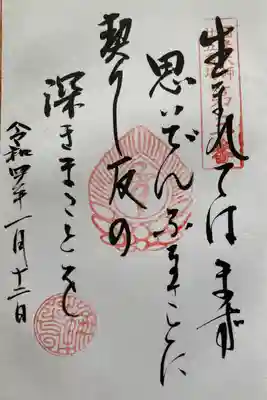 生まれてはまず
思いでんふるさとに
契りし友の
深きまことを
令和四年一月十二日